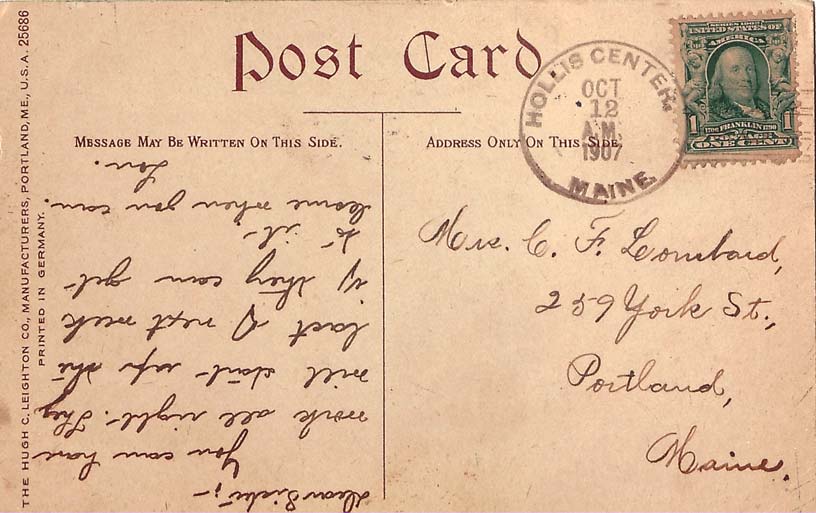 Post Card
MESSAGE MAY BE WRITTEN ON THIS SIDE.
ADDRESS ONLY ON THIS SIDE.
THE HUGH C. LEIGHTON CO., MANUFACTURERS, PORTLAND, ME., U.S.A. 25686
PRINTED IN GERMANY.
HOLLIS CENTER,
OCT
12
A.M.
1907
MAINE.
SERIES 1902
UNITED STATES OF
AMERICA
1 1706 FRANKLIN 1790 1
POSTAGE
ONE CENT
Dear Sister;-
You can have
work all right. They
will start up the
last of next week
if they can get
to it.
Come when you can.
Lou.
Mrs. C. F. Lombard,
259 York St.,
Portland,
Maine.